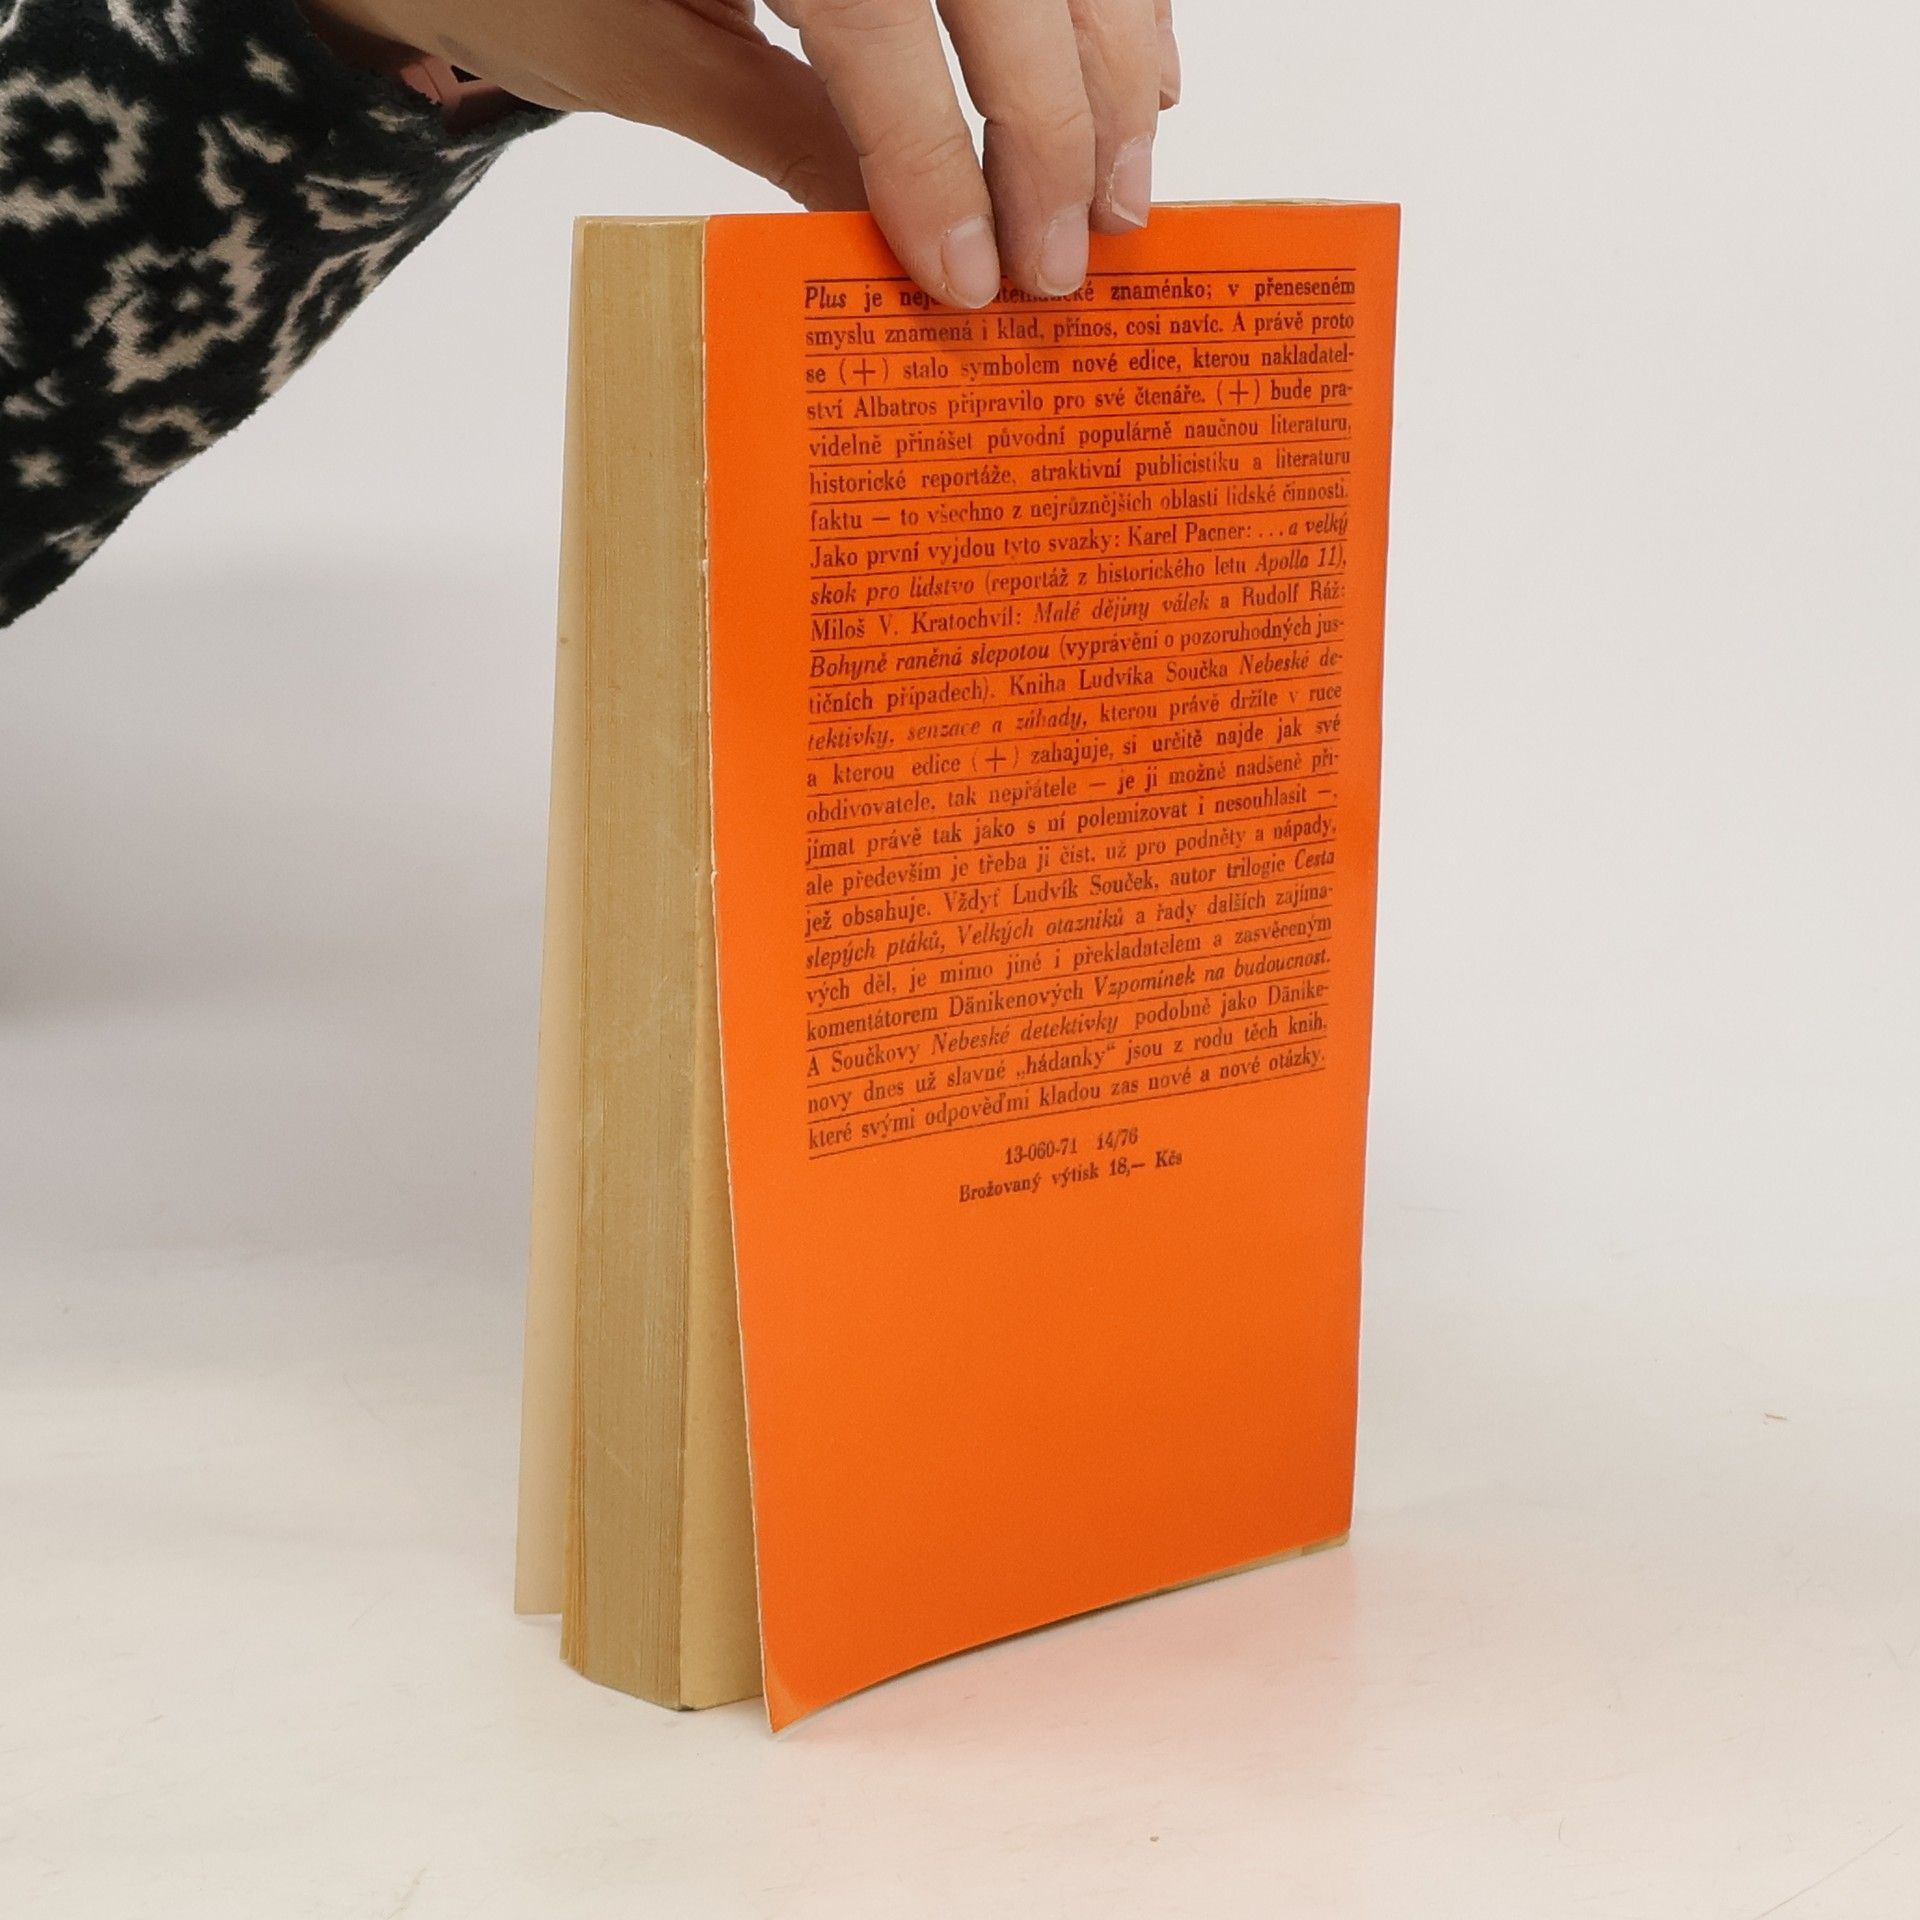 Plus je znaménko; v přeneseném
smyslu znamená i klad, přínos, cosi navíc. A právě proto
se (+) stalo symbolem nové edice, kterou nakladatel-
ství Albatros připravilo pro své čtenáře. (+) bude pra-
videlně přinášet původní populárně naučnou literaturu,
historické reportáže, atraktivní publicistiku a literaturu
faktu — to všechno z nejrůznějších oblastí lidské činnosti.
Jako první vyjdou tyto svazky: Karel Pacner: ...a velký
skok pro lidstvo (reportáž z historického letu Apolla 11),
Miloš V. Kratochvíl: Malé dějiny válek a Rudolf Ráž:
Bohyně raněná slepotou (vyprávění o pozoruhodných jus-
tičních případech). Kniha Ludvíka Součka Nebeské de-
tektivky, senzace a záhady, kterou právě držíte v ruce
a kterou edice (+) zahajuje, si určitě najde jak své
obdivovatele, tak nepřátele — je ji možné nadšeně při-
jímat právě tak jako s ní polemizovat i nesouhlasit —,
ale především je třeba ji číst, už pro podněty a nápady,
jež obsahuje. Vždyť Ludvík Souček, autor trilogie Cesta
slepých ptáků, Velkých otazníků a řady dalších zajíma-
vých děl, je mimo jiné i překladatelem a zasvěceným
komentátorem Dänikenových Vzpomínek na budoucnost.
A Součkovy Nebeské detektivky podobně jako Dänike-
novy dnes už slavné „hádanky“ jsou z rodu těch knih,
které svými odpověďmi kladou zas nové a nové otázky.
13-060-71 14/76
Brožovaný výtisk 18,— Kčs